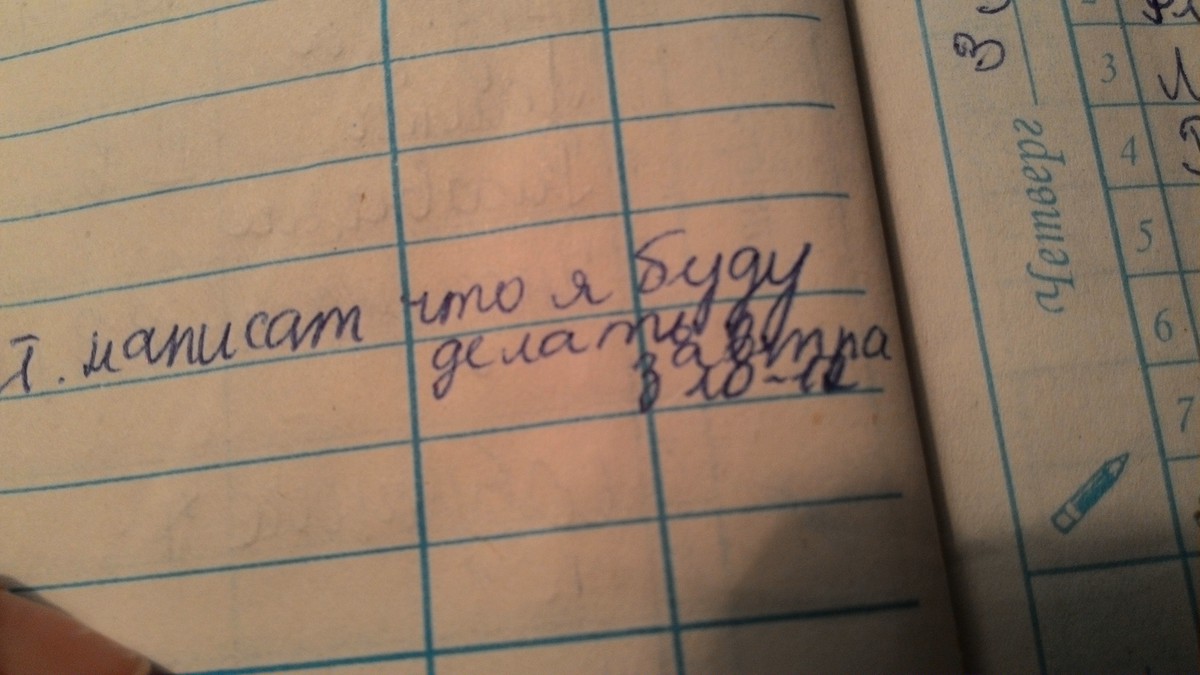 т. написат что я буду
делать завтра
з 10-12
Четверг
3
3
4
5
6
7